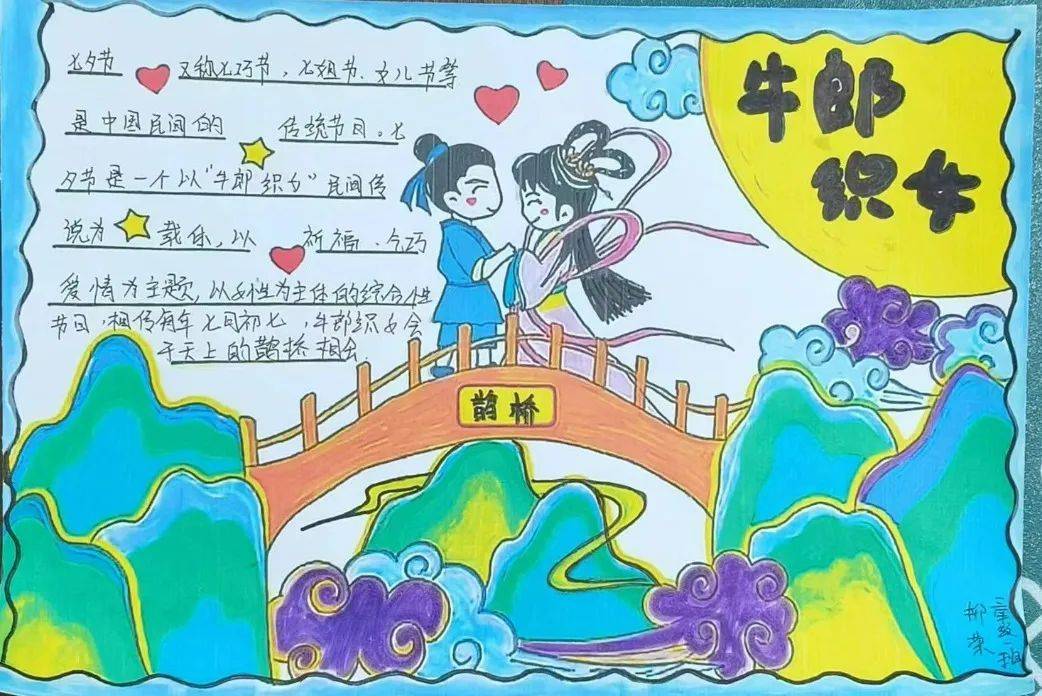 牛郎
织女
七夕节 又称七巧节，七姐节、女儿节等
是中国民间的 传统节日。七
夕节是一个以“牛郎织女”民间传
说为 载体，以 祈福、乞巧
爱情为主题，以女性为主体的综合性
节日，相传每年七月初七，牛郎织女会
于天上的鹊桥相会.
鹊桥